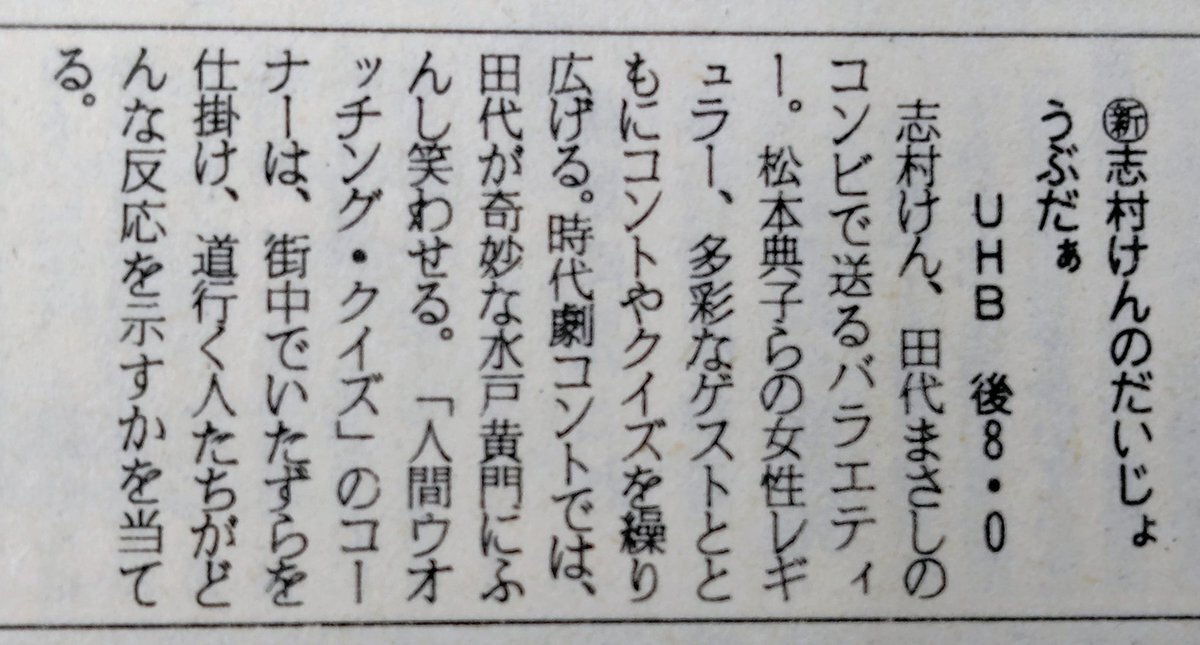 ㊟志村けんのだいじょ
うぶだぁ
UHB 後8・0
志村けん、田代まさしの
コンビで送るバラエティ
ー。松本典子らの女性レギ
ュラー、多彩なゲストとと
もにコントやクイズを繰り
広げる。時代劇コントでは、
田代が奇妙な水戸黄門にふ
んし笑わせる。「人間ウオ
ッチング・クイズ」のコー
ナーは、街中でいたずらを
仕掛け、道行く人たちがど
んな反応を示すかを当て
る。